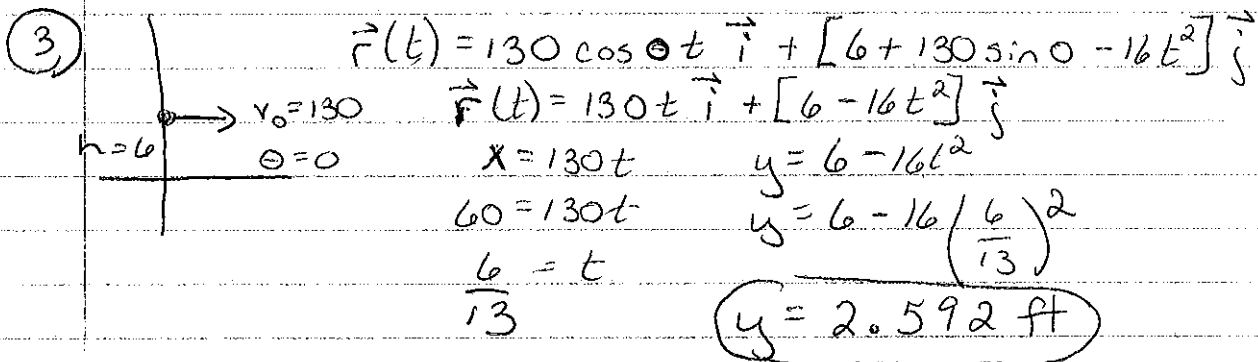 3,
r⃗(t) = 130 cos θ t i⃗ + [6 + 130 sin 0 - 16t²] j⃗
v₀ = 130
r⃗(t) = 130t i⃗ + [6 - 16t²] j⃗
h = 6
θ = 0
x = 130t
y = 6 - 16t²
60 = 130t
y = 6 - 16(6/13)²
6/13 = t
y = 2.592 ft